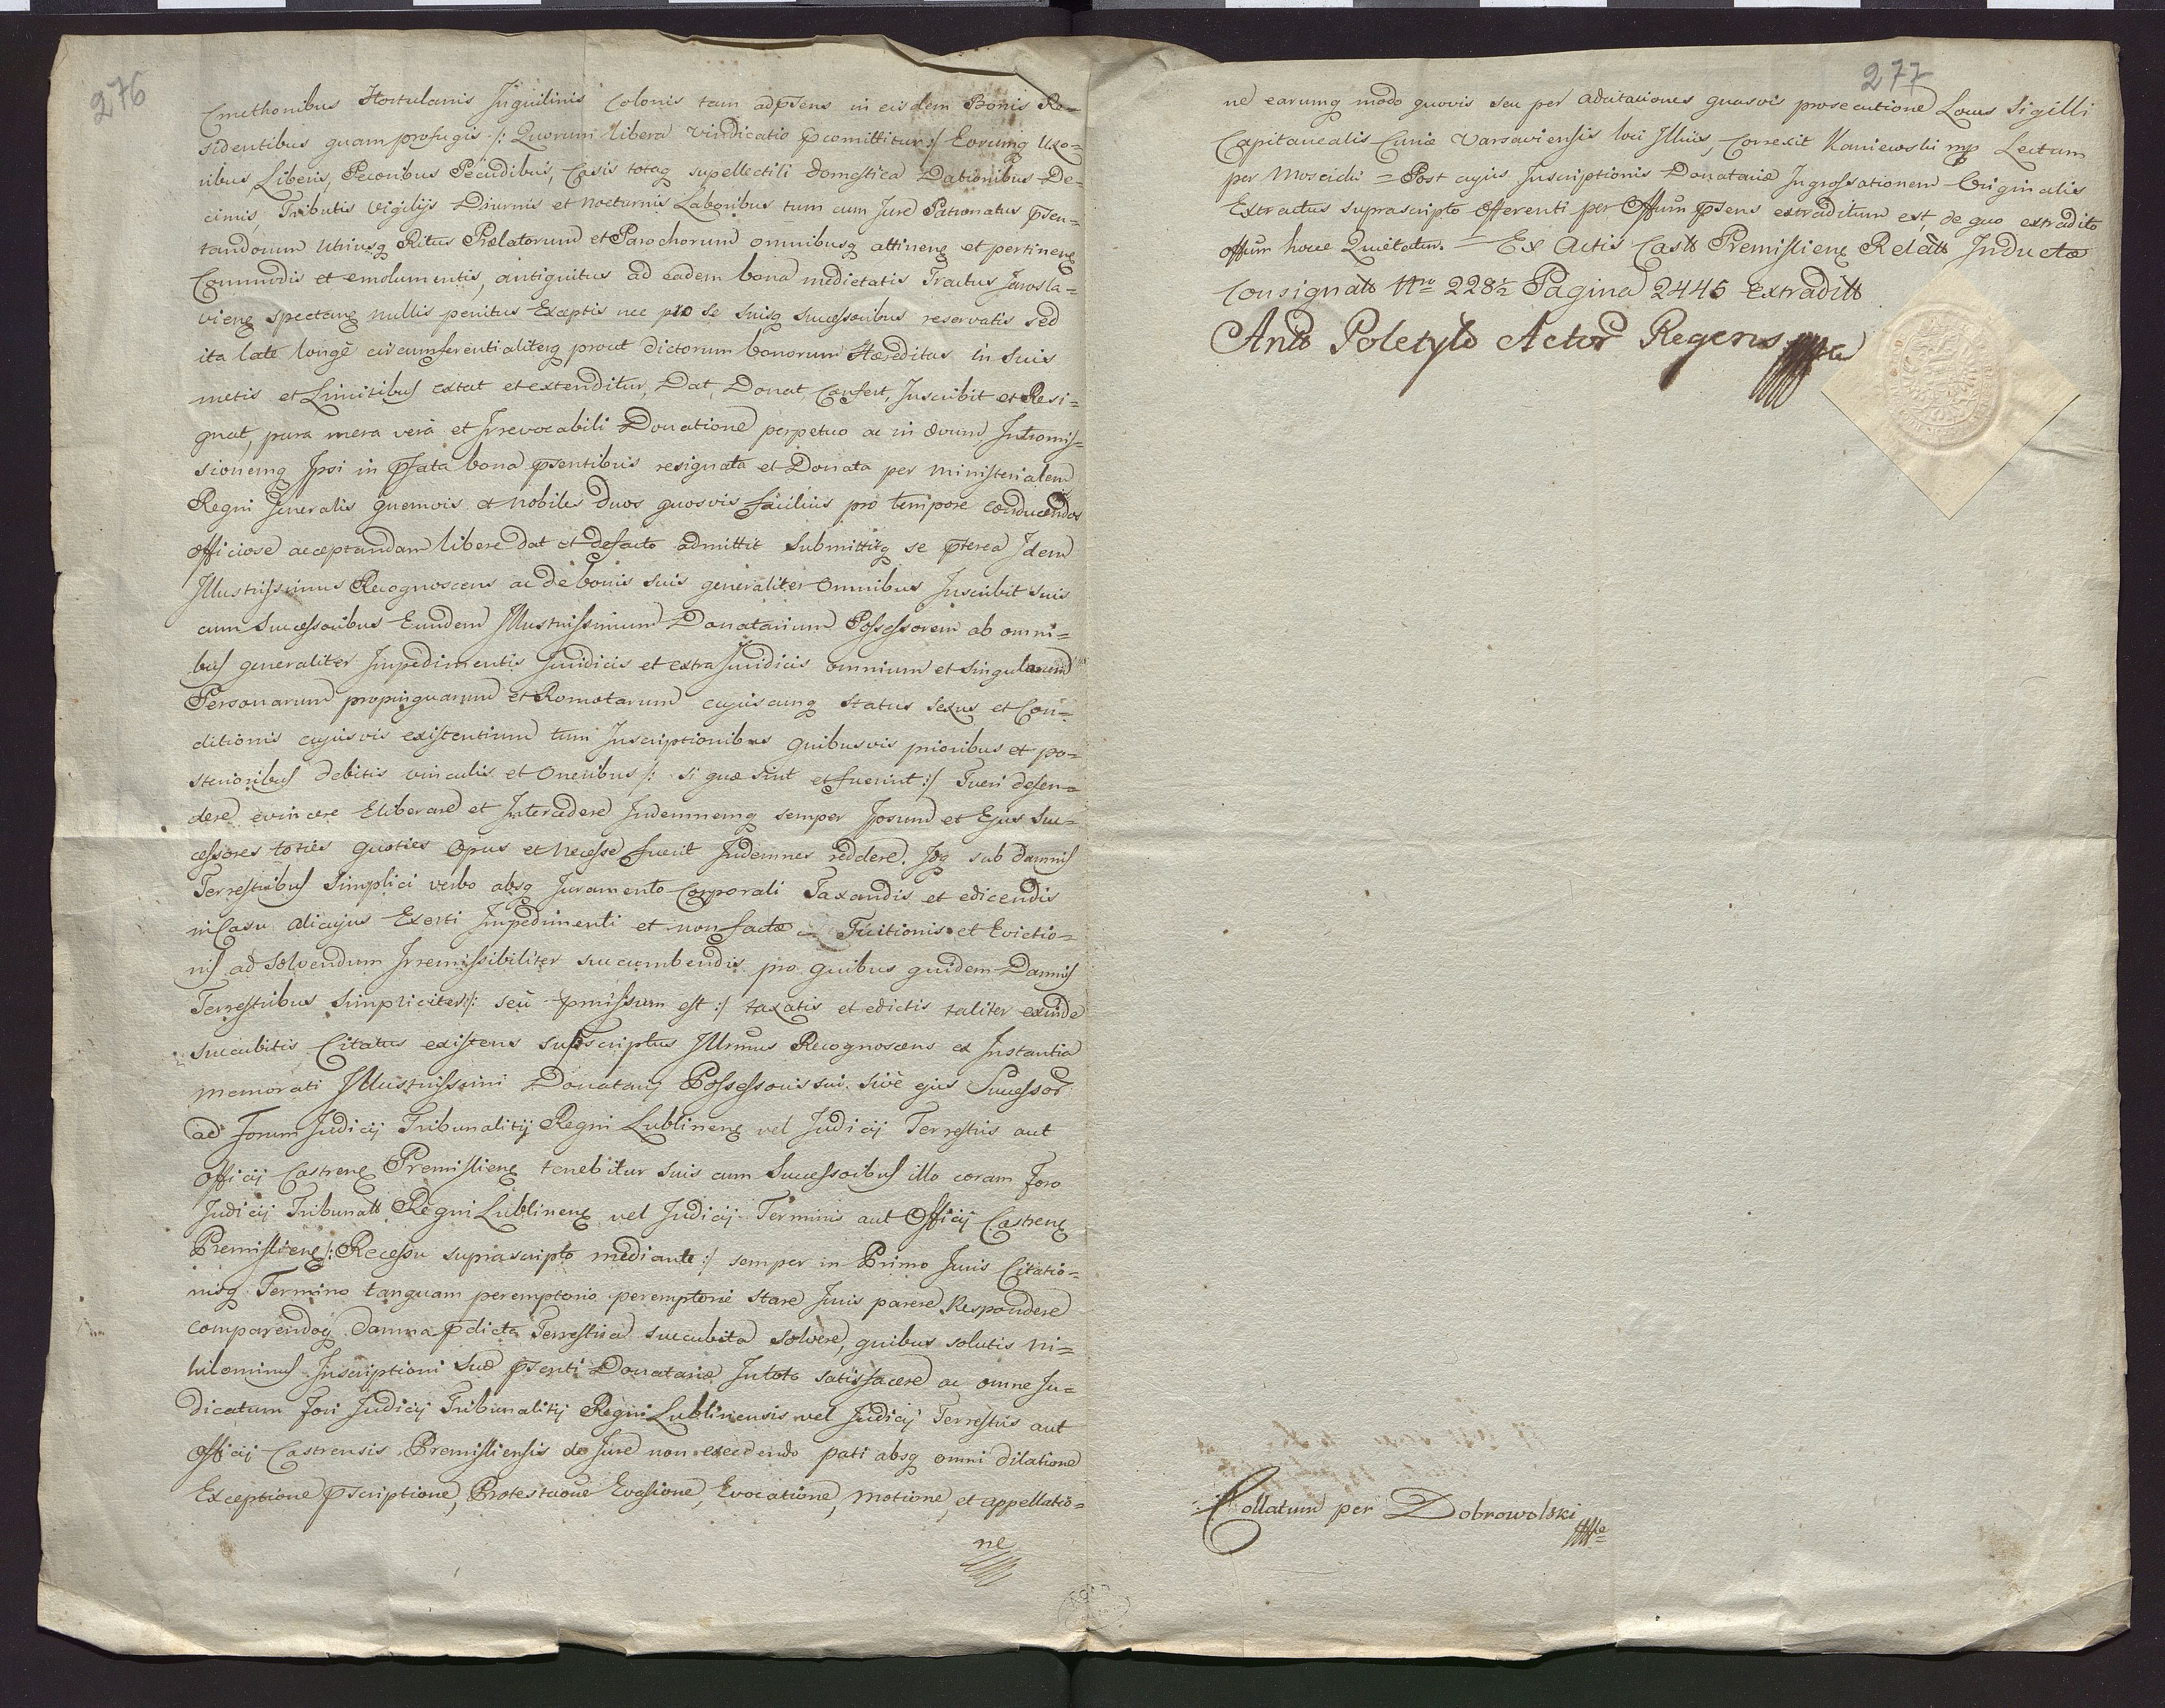 276
Cmethonibus Hortulanis Inquilinis Colonis tam adpsens in eisdem Bonis Re-
sidentibus quam profugis /: Quorum libera vindicatio pcomittitur :/ Eorumq Uxo-
ribus Liberis, Pecoribus Pecudibus, Casis totaq supellectili domestica Dationibus De-
cimis, Tributis Vigilijs Diurnis et Nocturnis Laboribus tum cum Jure Patronatus psen-
tandorum Utriusq Ritus Prælatorum et Parochorum omnibusq attinenĘ et pertinenĘ
Commodis et emolumentis, antiquitus ad eadem bona medietatis Tractus Jarosla=
vienĘ spectanĘ nullis penitus Exceptis nec pro se suisq successoribus reservatis sed
ita late longè circumferentialiterq prout dictorum bonorum Hæreditas in suis
metis et Limitibus extat et extenditur, Dat, Donat, Confert, Inscribit et Resi=
gnat, pura mera vera et Irrevocabili Donatione perpetuo ac in ævum, Intromis=
sionemq Ipsi in pfata bona psentibus resignata et Donata per Ministerialem
Regni Generalis quemvis et Nobiles Duos quosvis facilius pro tempore conducendos
officiose acceptandam libere dat et defacto admittit Submittitq se pterea Idem
Illustrissimus Recognoscens ac de bonis suis generaliter omnibus Inscribit suis
cum Successoribus Eundem Illustrissimum Donatarium Possessorem ab omni=
bus generaliter Impedimentis Juridicis et extra Juridicis omnium et singularum
Personarum propinquarum et Romotarum cujuscunq status sexus et Con=
ditionis cujusvis existentium tum Inscriptionibus quibusvis prioribus et po=
sterioribus debitis vinculis et Oneribus /: si quæ sint et fuerint :/ Tueri defen=
dere evincere Eliberare et Intercedere Indemnemq semper Ipsum et Ejus Suc=
cessores toties quoties Opus et Necesse fuerit Indemnes reddere. Idq sub damnis
Terrestribus Simplici verbo absq Juramento Corporali Taxandis et edicendis
in Casu alicujus Exorti Impedimenti et non factæ Tuitionis et Evictio=
nis ad Solvendum Irremissibiliter succumbendis pro quibus quidem Damnis
Terrestribus Simpliciter /: seu pmissum est :/ taxatis et edictis taliter exinde
succubitis Citatus existens suprascriptus Illrmus Recognoscens ex Instantia
memorati Illustrissimi Donatarij Possessoris sui sive ejus Successor
ad Forum Judicij Tribunalitij Regni LublinenĘ vel Judicij Terrestris aut
Officij CastrenĘ PremislienĘ tenebitur suis cum Successoribus illo coram Foro
Judicij Tribunall Regni LublinenĘ vel Judicij Terminis aut Officij CastrenĘ
PremislienĘ /: Recessu suprascripto mediante :/ semper in Primo Juris Citatio=
nisq Termino tanquam peremptorio peremptorie stare Juris parere Respondere
comparendoq damna pdicta Terrestria succubita solvere, quibus solutis ni=
hilominus Inscriptioni suæ psenti Donatariæ Intoto satisfacere ac omne Ju=
dicatum Fori Judicij Tribunalitij Regni Lublinensis vel Judicij Terrestris aut
Officij Castrensis Premisliensis de Jure non excedendo pati absq omni dilatione
Exceptione pscriptione, Protestatione Evasione, Evocatione, Motione, et appellatio=
ne
277
ne earumq modo quovis seu per adcitationes quasvis prosecutione Locus Sigilli
Capitanealis Curiæ Varsaviensis loci Illius, Correxit Kaniewski mp Lectum
per Moscicki = Post cujus Inscriptionis Donatariæ Ingrossationem Originalis
Extractus suprascripto Offerenti per Offum psens extraditum est, de quo extradito
offum hocce Quietatur. = Ex Actis Castt PremislienĘ Relatt Inductæ
Consignatt Nro 228½ Pagina 2445 Extraditt
Antt Poletylo Actor Regens mp
Collatum per Dobrowolski
mp